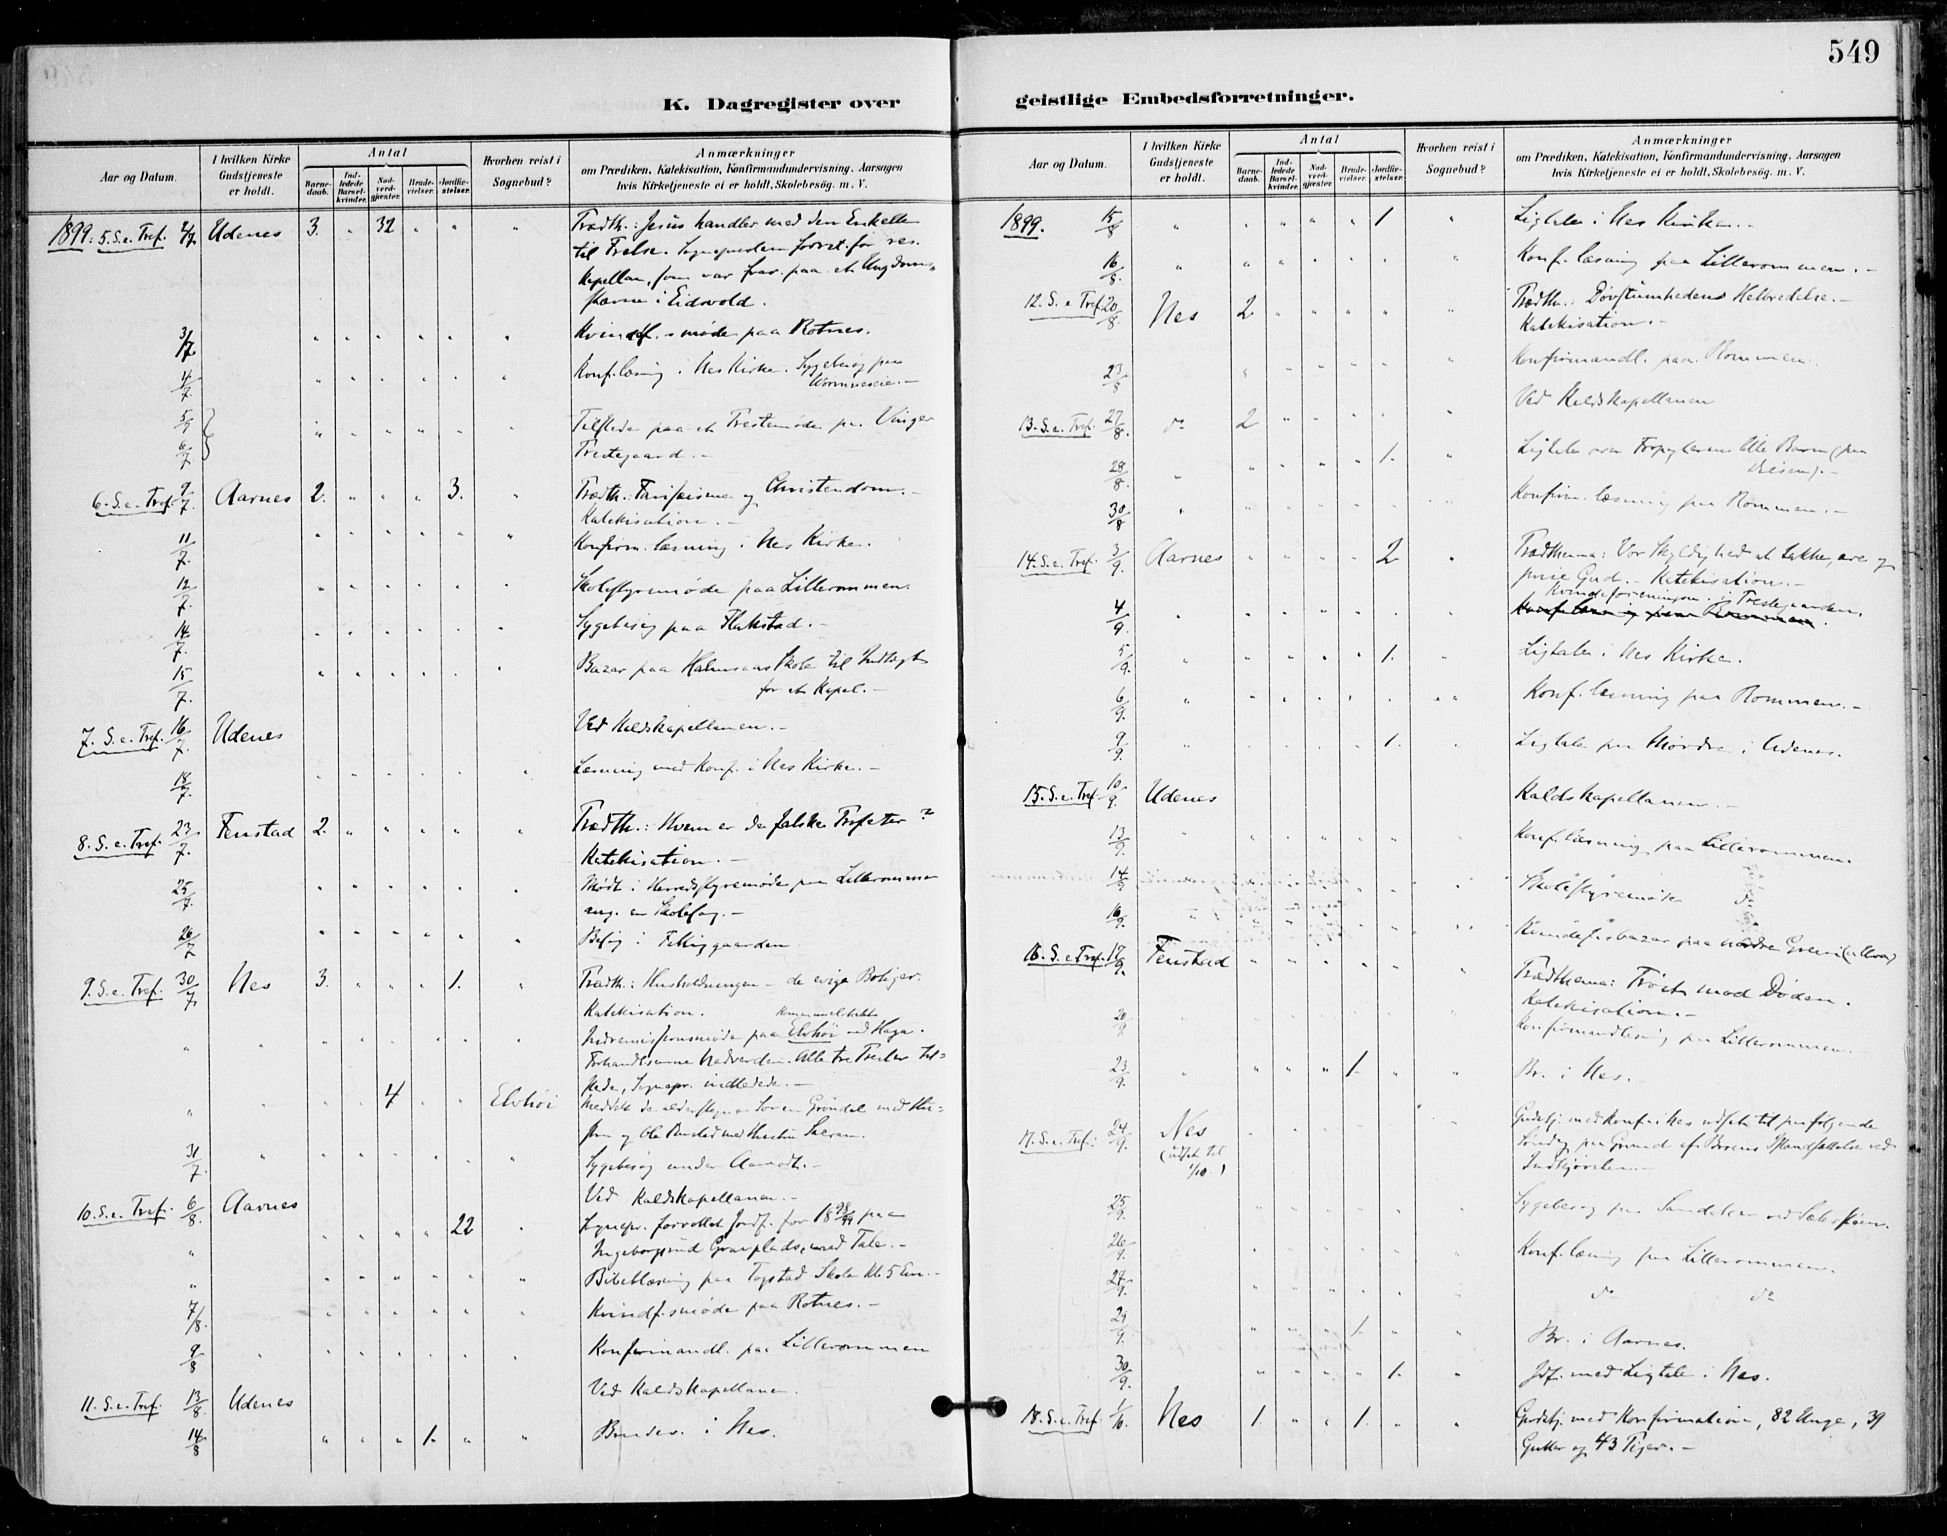 549
K. Dagregister over
geistlige Embedsforretninger.
Aar og Datum.
I hvilken Kirke Gudstjeneste er holdt.
Antal
Barne-daab.
Ind-ledede Barsel-kvinder.
Nad-verd-gjester.
Brude-vielser.
Jordfæ-stelser.
Hvorhen reist i Sognebud?
Anmærkninger
om Prædiken, Katekisation, Konfirmandundervisning, Aarsagen
hvis Kirketjeneste ei er holdt, Skolebesög, m. V.
1899: 5. S. e. Tref. 2/7. Udenes 3. " 32 " " " Prædth.: Jesus handler med den Enkelte
til Frelse. Sognepresten forret. for res.
Kapellan, som var frav. paa et Ungdoms-
stævne i Eidsvold.
3/7 " " " " " " Kvindf.smøde paa Rotnes.
4/7 " " " " " " Konf.læsning i Nes Kirke. Sygebesøg paa
5/7 6/7 " " " " " " Tilstede paa et Prestemøde paa Vinger
Prestegaard. -
6. S. e. Tref. 9/7. Aarnes 2. " " " 3. " Prædth.: Farisæisme og Christendom. -
Katekisation. -
11/7. " " " " " " Konfirm.læsning i Nes Kirke.
12/7. " " " " " " Skolestyremøde paa Lillerommen.
14/7. " " " " " " Sygebesøg paa Hakstad. -
15/7. " " " " " " Bazar paa Skole til Indtægt
for et Kapel. -
7. S. e. Tref. 16/7. Udenes Ved Kaldskapellanen. -
18/7. " " " " " " Læsning med Konf. i Nes Kirke. -
8. S. e. Tref. 23/7. Fenstad 2. " " " " " Prædth.: Hvem er de falske Profeter?
Katekisation. -
25/7. " " " " " " Mødt i Herredsstyremøde paa Lillerommen
ang. en Skolesag. -
26/7 " " " " " " Besøg i Fattiggaarden
9. S. e. Tref. 30/7. Nes 3. " " " 1. " Prædth.: Husholdningen - de evige Boliger.
Katekisation.
Indremissionsmøde paa Elvhøi ved Haga.
Forhandlsemne Nadverden. Alle tre Prester til-
stede, Sognepr. indledede. -
" " " " 4 " " Elvhøi Meddelt de Søren Grøndal med Hu-
stru og Ole med Hustru Sacram.
31/7. " " " " " " Sygebesøg under Aamodt. -
10. S. e. Tref. 6/8. Aarnes Ved Kaldskapellanen. -
" " " " " 22 " Sognepr. forrettet Jordf. for 1898/99 paa
Ingeborgsrud Gravplads, med Tale. -
" " " " " " " Bibellæsning paa Togstad Skole Kl. 5 Em. -
7/8. " " " " " " Kvindf.smøde paa Rotnes. -
9/8 " " " " " " Konfirmandl. paa Lillerommen
11. S. e. Tref. 13/8. Udenes Ved Kaldskapellanen.
14/8 " " " 1. " " Brudev. i Nes.
Aar og Datum.
I hvilken Kirke Gudstjeneste er holdt.
Antal
Barne-daab.
Ind-ledede Barsel-kvinder.
Nad-verd-gjester
Brude-vielser.
Jordfæ-stelser.
Hvorhen reist i Sognebud?
Anmærkninger
om Prædiken, Katekisation, Konfirmandundervisning, Aarsagen
hvis Kirketjeneste ei er holdt, Skolebesög, m. V.
1899. 15/8 " " " " " 1. " Ligtale i Nes Kirke. -
16/8. " " " " " " " Konf. læsning paa Lillerommen. -
12. S. e Tref. 20/8. Nes 2 " " " " " Prædth.: Døvstumhedens Helbredelse. -
Katekisation. -
23/8 " " " " " " Konfirmandl. paa Rommen.
13. S. e. Tref. 27/8. do 2 " " " " " Ved Kaldskapellanen
28/8. " " " " " 1. " Ligtale over Barn (paa
30/8 " " " " " " " Konfirm. læsning paa Rommen. -
14. S. e. Tref. 3/9. Aarnes " " " " 2 " Prædthema: Vor Skyldighed at takke, ære og
prise Gud. - Katekisation. -
Kvindeforeningen i Prestegaarden.
4/9. " " " " " " " Konf. læsning paa Rommen.
5/9. " " " " " 1. " Ligtale i Nes Kirke.
6/9. " " " " " " " Konf. læsning paa Rommen. -
9/9. " " " " " 1. " Ligtale paa Hvordre i Udenes.
15. S. e. Tref. 10/9. Udenes Kaldskapellanen. -
13/9. " " " " " " " Konf. læsning paa Lillerommen.
14/9 " " " " " " Skolestyremøde do
16/9. " " " " " " " Kvindef.sbazar paa nordre Greni
16. S. e Tref. 17/9. Fenstad " " " " " " Prædthema: Trøst mod Døden.
Katekisation. -
20/9. " " " " " " " Konfirmandlæsning paa Lillerommen. -
23/9. " " " " 1. " " Br. i Nes. -
17. S. e. Tref. 24/9. Nes (udsat til 1/10.) Gudstj. med Konf. i Nes udsat til paafølgende
Søndag paa Grund af Broens Istandsættelse ved
Indkjørelen. -
25/9. " " " " " " Sygebesøg paa
26/9. " " " " " " Konf. læsning paa Lillerommen.
27/9. " " " " " " do do
29/9. " " " 1. " " Br. i Aarnes.
30/9. " " " " 1. " Jdf. med Ligtale i Nes.
18. S. e. Tref. 1/10. Nes 1. " " 1. " " Gudstj. med Konfirmation, 82 Unge, 39
Gutter og 43 Piger. -